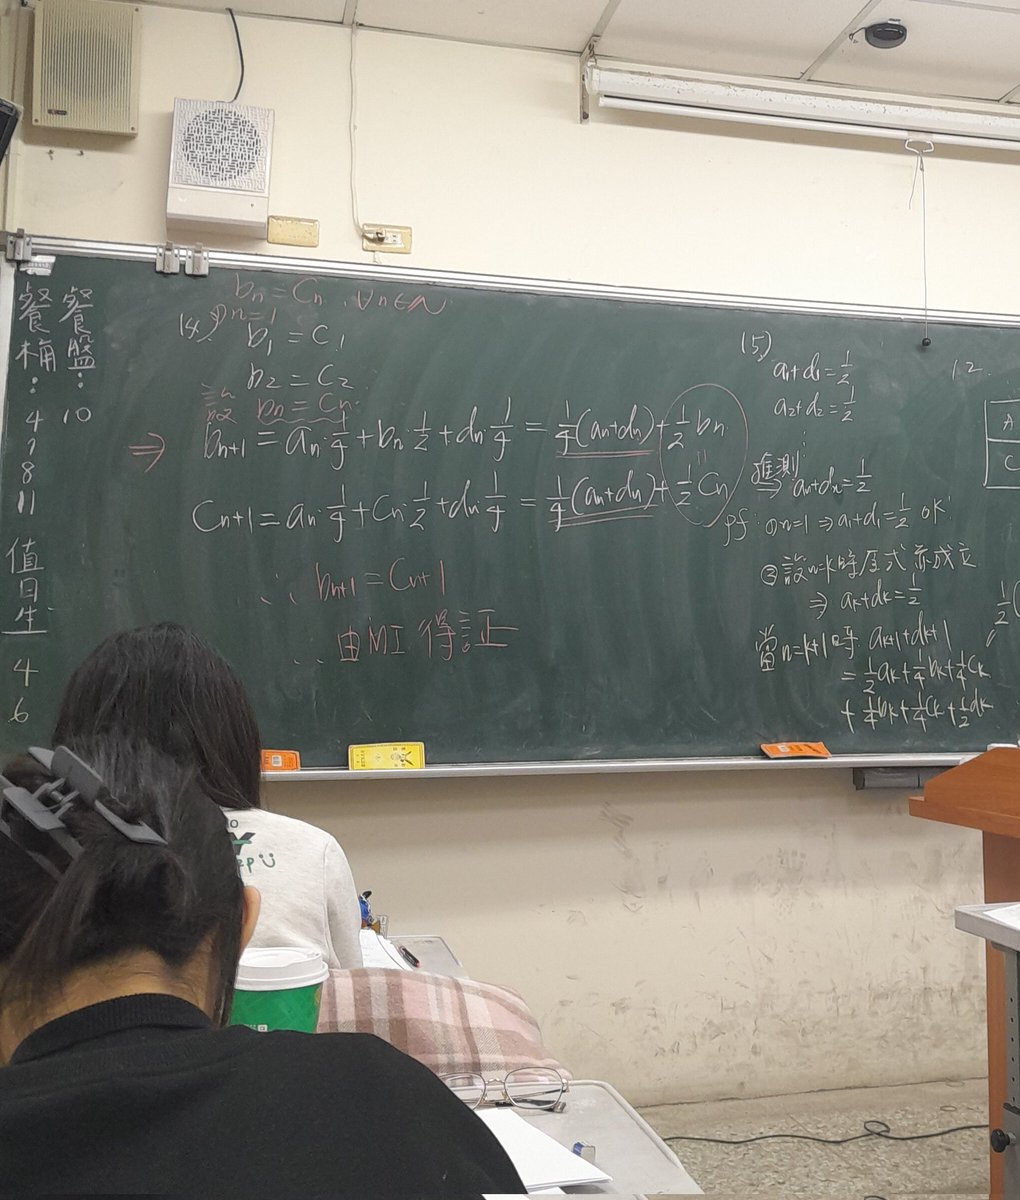 餐盤：10
餐桶：4 7 8 11
值日生
4
6
bn = Cn, ∀n∈N
14. ① n=1
b1 = C1
b2 = C2
設 bn = Cn
⇒ bn+1 = an·1/4 + bn·1/2 + dn·1/4 = 1/4(an+dn) + 1/2 bn
Cn+1 = an·1/4 + Cn·1/2 + dn·1/4 = 1/4(an+dn) + 1/2 Cn
∴ bn+1 = Cn+1
∴ 由MI 得証
15.
a1+d1=1/2
a2+d2=1/2
⋮
推測
⇒ an+dn=1/2
pf: ① n=1 ⇒ a1+d1=1/2 ok!
② 設n=k時原式亦成立
⇒ ak+dk=1/2
當n=k+1時 ak+1+dk+1
= 1/2ak+1/4bk+1/4Ck
+ 1/4bk+1/4Ck+1/2dk
12.
A
C